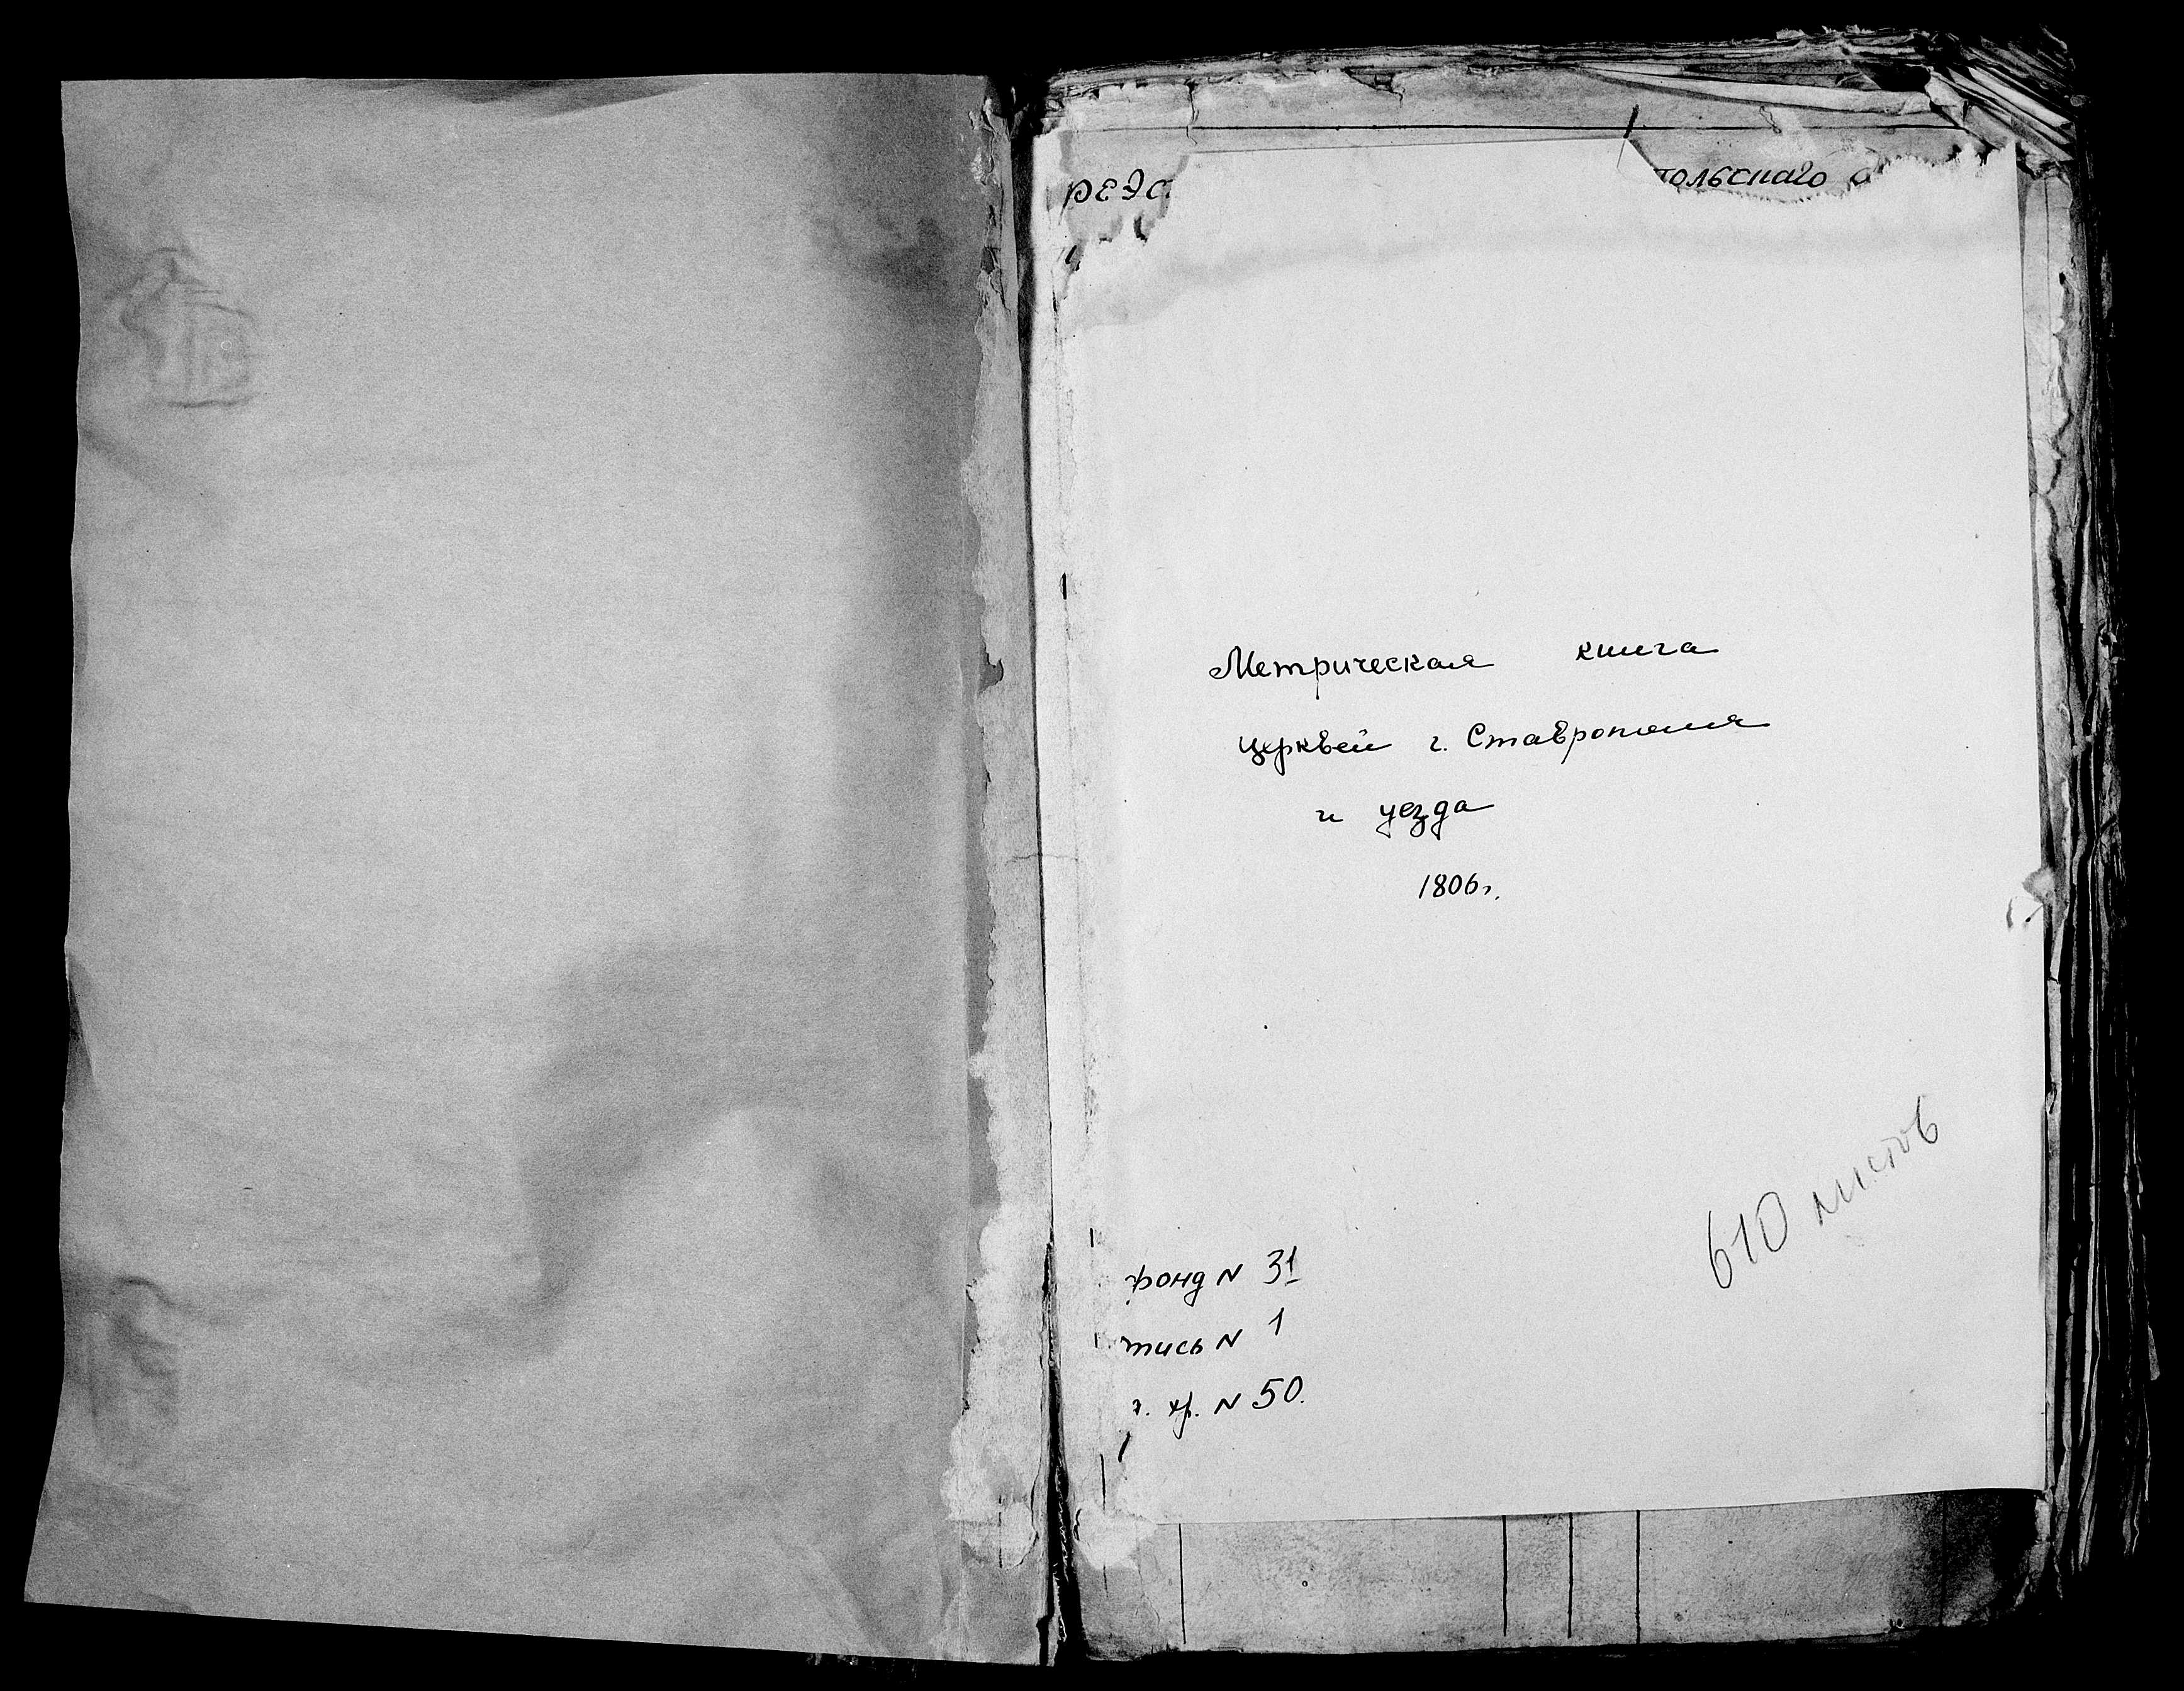 польскаго
Метрическая книга
церквей г. Ставрополя
и уезда
1806 г.
610 листов
фонд N 31
пись N 1
г. хр. N 50.